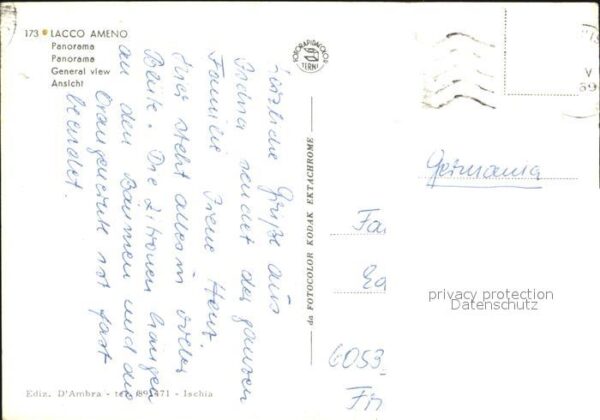 173 LACCO AMENO
Panorama
Panorama
General view
Ansicht
FOTORAPIDACOLOR
TERNI
Herzliche Grüße aus
Ischia sendet der ganzen
Familie Irene Henz.
Hier steht alles in voller
Blüte. Die Zitronen hängen
an den Bäumen und die
Orangenernte ist fast
beendet.
da FOTOCOLOR KODAK EKTACHROME
Germania
Fa
6053
privacy protection
Datenschutz
Ediz. D'Ambra - tel. 891471 - Ischia